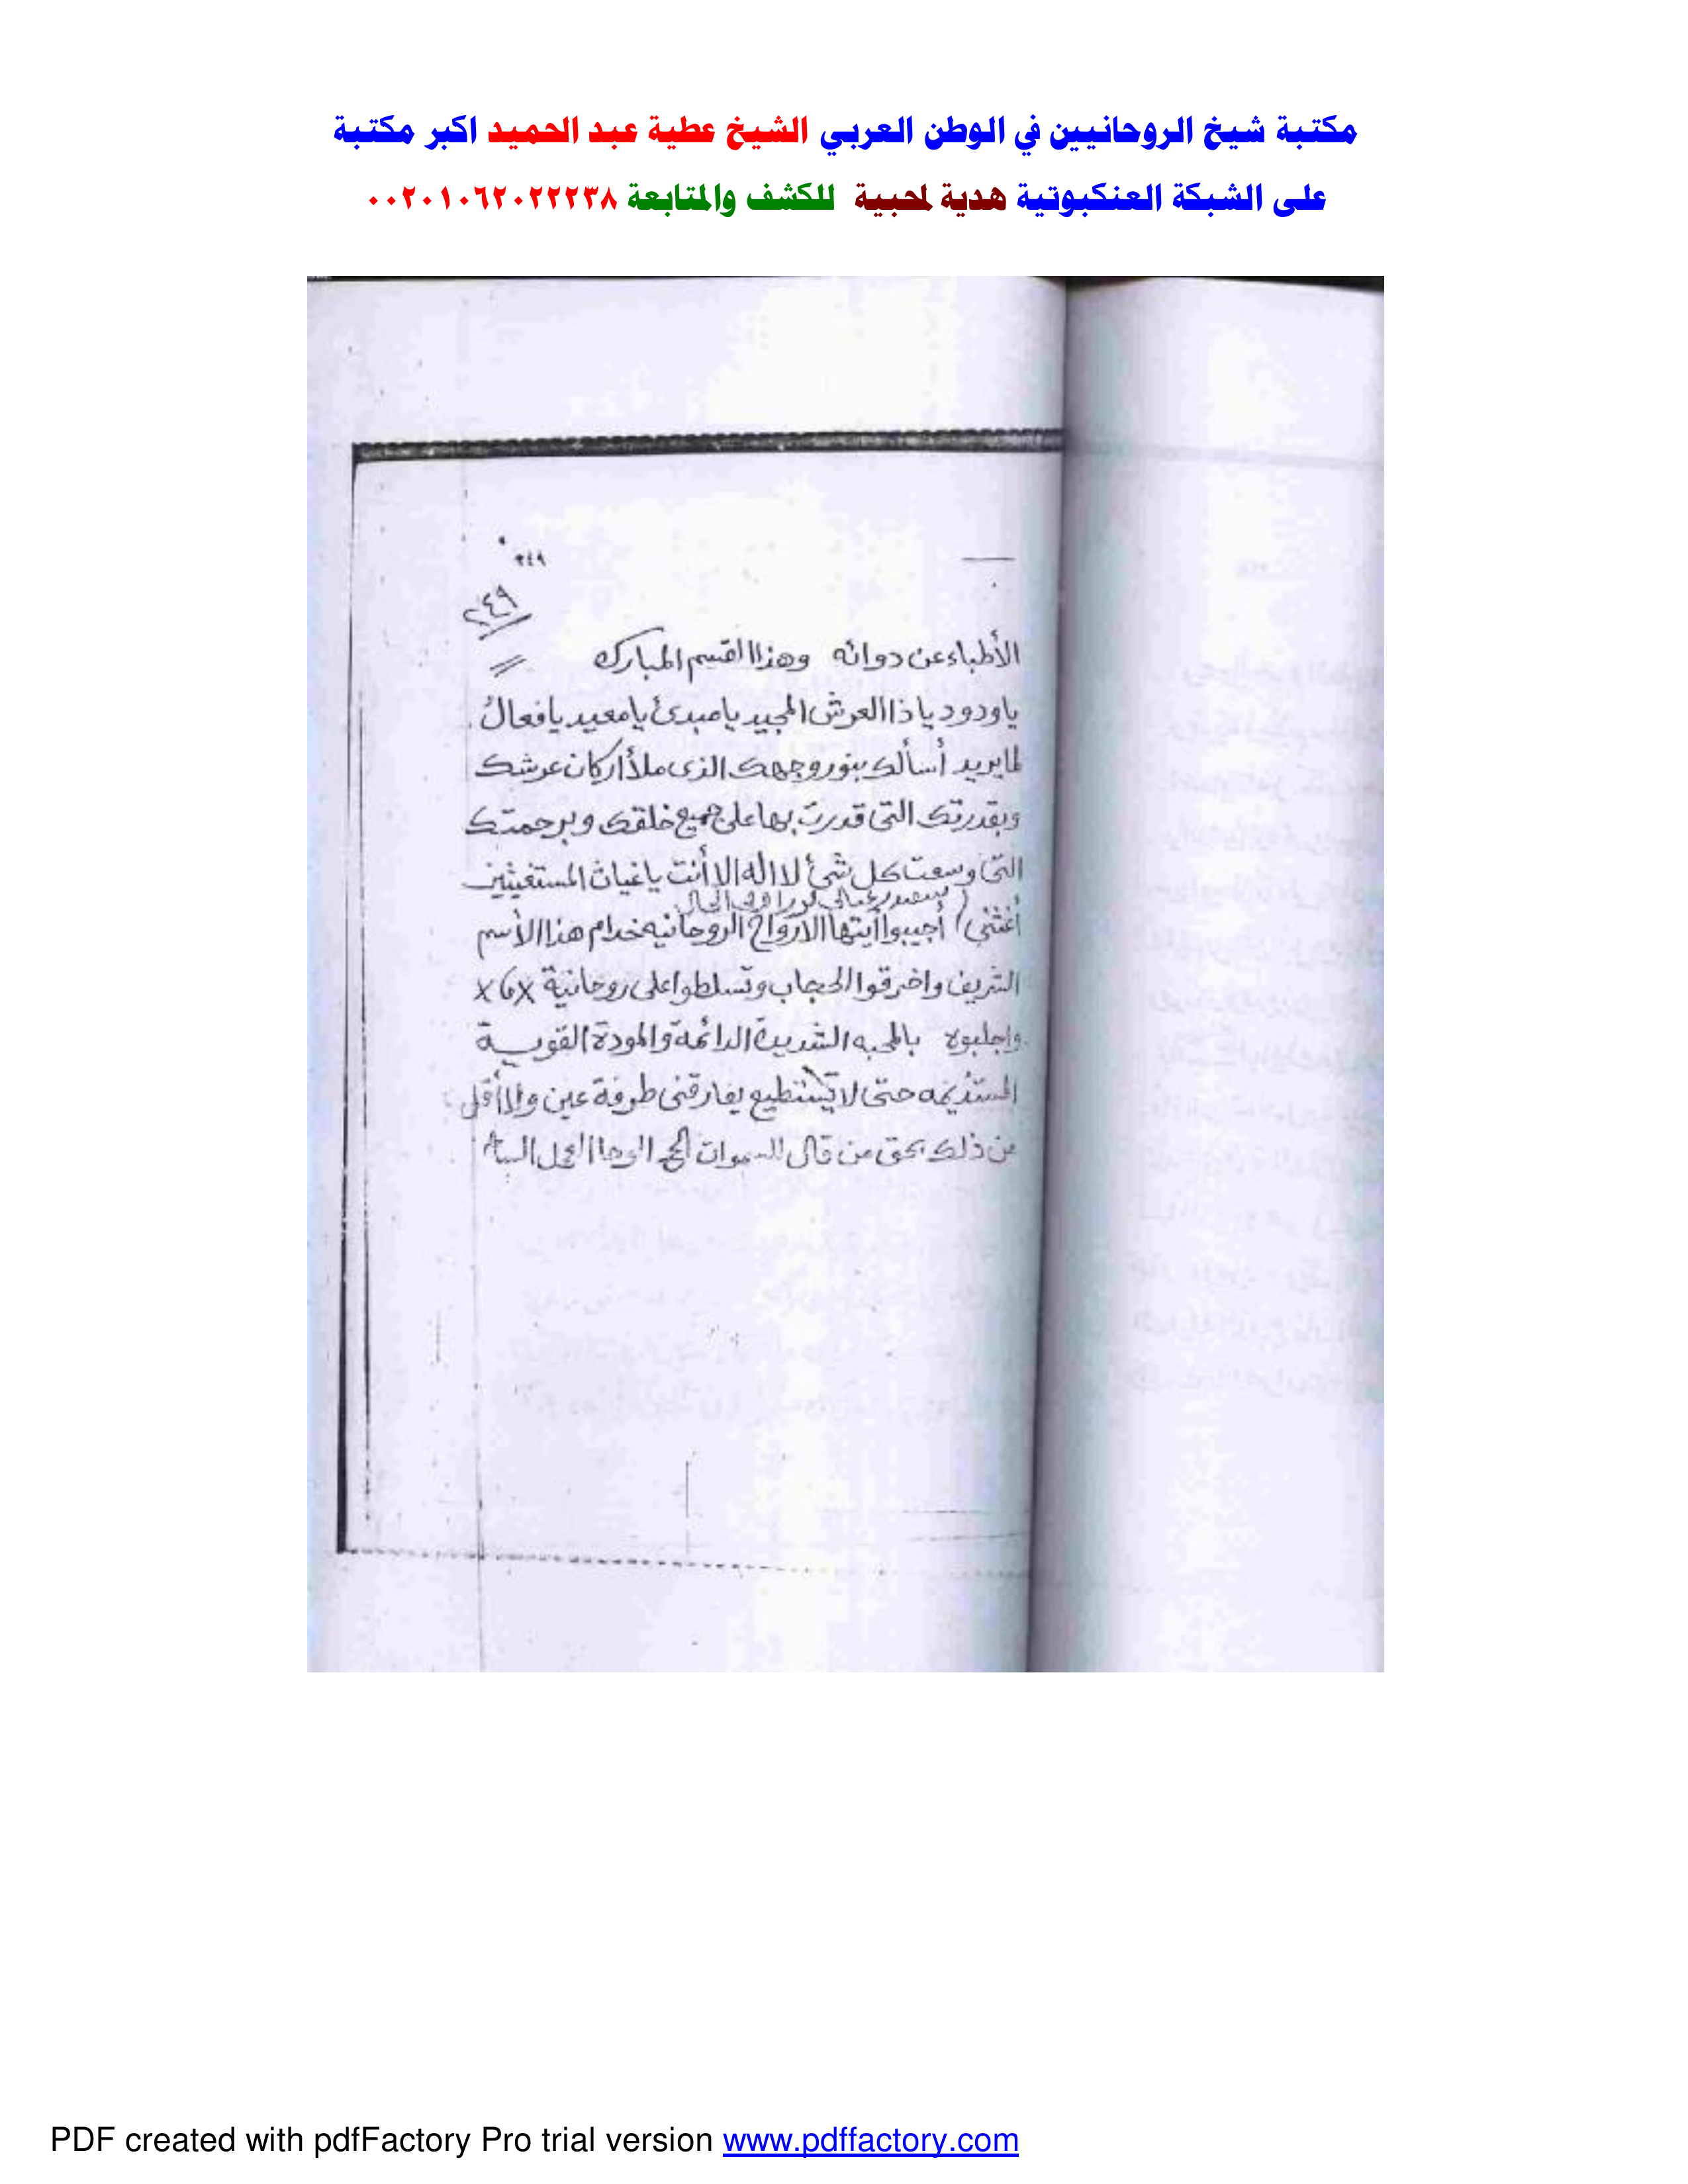 مكتبة شيخ الروحانيين في الوطن العربي الشيخ عطية عبد الحميد اكبر مكتبة
على الشبكة العنكبوتية هدية لمحبية للكشف والمتابعة ٠٠٢٠١٠٦٢٠٢٢٢٣٨
٢٤٩
٢٤٩
الأطباء عن دوائه وهذا القسم المبارك
ياودود ياذا العرش المجيد يا مبدئ يا معيد يا فعالُ
لما يريد أسألك بنور وجهك الذى ملأ أركان عرشك
وبقدرتك التى قدرت بها على جميع خلقك وبرحمتك
التى وسعت كل شئ لا اله الا أنت ياغياث المستغيثين
أغثنى ( أجيبوا أيتها الارواح الروحانيه خدام هذا الأسم
الشريف واخرقوا الحجاب وتسلطوا على روحانية
واجلبوه بالمحبه الشديدة الدائمة والمودة القوية
المستديمه حتى لا يستطيع يفارقنى طرفة عين ولا أقل
من ذلك بحق من قال للسموات الوحا العجل
PDF created with pdfFactory Pro trial version www.pdffactory.com